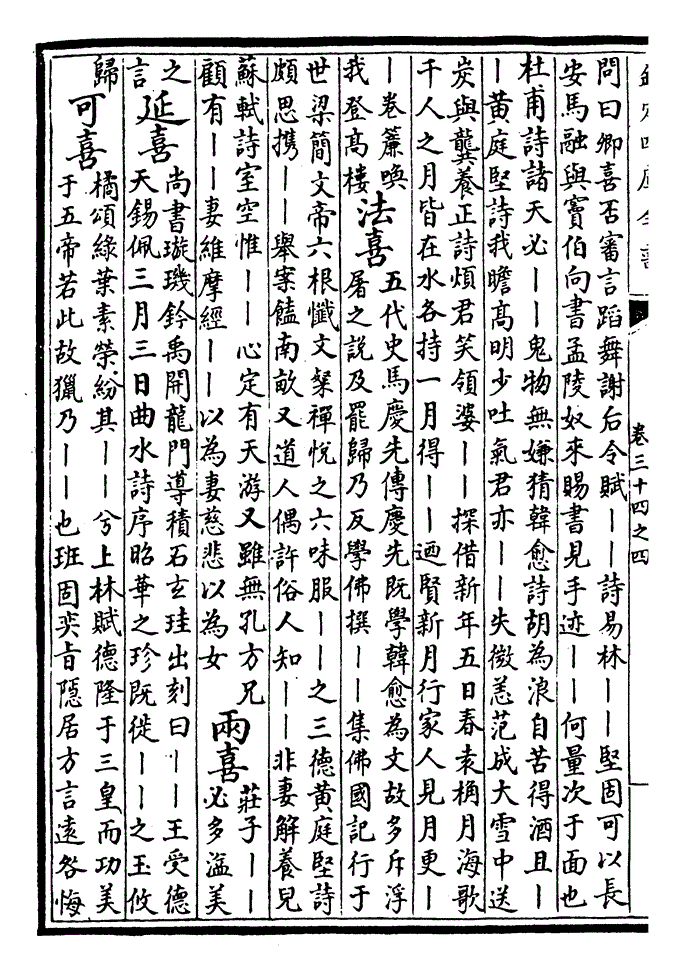 欽定四庫全書
卷三十四之四
問曰卿喜否審言蹈舞謝后令賦丨丨詩易林丨丨堅固可以長
安馬融與竇伯向書孟陵奴來賜書見手迹丨丨何量次于面也
杜甫詩諸天必丨丨鬼物無嫌猜韓愈詩胡為浪自苦得酒且丨
丨黄庭堅詩我瞻髙明少吐氣君亦丨丨失微恙范成大雪中送
炭與龔養正詩煩君笑領婆丨丨探借新年五日春袁桷月海歌
千人之月皆在水各持一月得丨丨迺賢新月行家人見月更丨
丨卷簾喚
我登髙樓
法喜
五代史馬慶先傳慶先既學韓愈為文故多斥浮
屠之說及罷歸乃反學佛撰丨丨集佛國記行于
世梁簡文帝六根懺文粲禪悅之六味服丨丨之三德黄庭堅詩
頗思携丨丨舉案饁南畝又道人偶許俗人知丨丨非妻解養兒
蘇軾詩室空惟丨丨心定有天游又雖無孔方兄
顧有丨丨妻維摩經丨丨以為妻慈悲以為女
兩喜
莊子丨丨
必多溢美
之
言
延喜
尚書璇璣鈐禹開龍門導積石玄珪出刻曰丨丨王受德
天錫佩三月三日曲水詩序昭華之珍既徙丨丨之玉攸
歸
可喜
橘頌緑葉素榮紛其丨丨兮上林賦德隆于三皇而功美
于五帝若此故獵乃丨丨也班固奕旨隱居方言遠咎悔